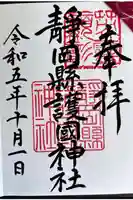 奉拝
靜岡縣護國神社
令和五年十月一日